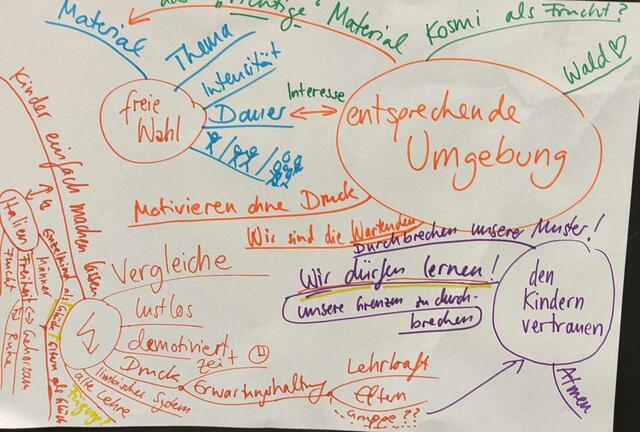 das "richtige" Material
Kosmi als Frucht?
Wald
Material
Thema
Intensität
Dauer
freie
Wahl
Interesse
entsprechende
Umgebung
Motivieren ohne Druck
Wir sind die Wartenden
Durchbrechen unsere Muster!
Wir dürfen lernen!
unsere Grenzen zu durch-
brechen
den
Kindern
vertrauen
Atmen
Kinder einfach machen lassen
Italien
Freiheit
Gehorsam
Frucht
Ruhe
Männer
Eltern als Glück
Vergleiche
lustlos
demotiviert
Druck
Zeit
limbisches System
alte Lehre
Erwartungshaltung
Lehrkraft
Eltern
Gruppe??